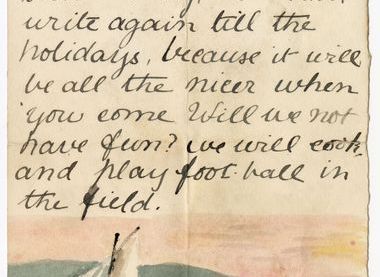 write again till the
holidays, because it will
be all the nicer when
you come Will we not
have fun? we will cook,
and play foot-ball in
the field.